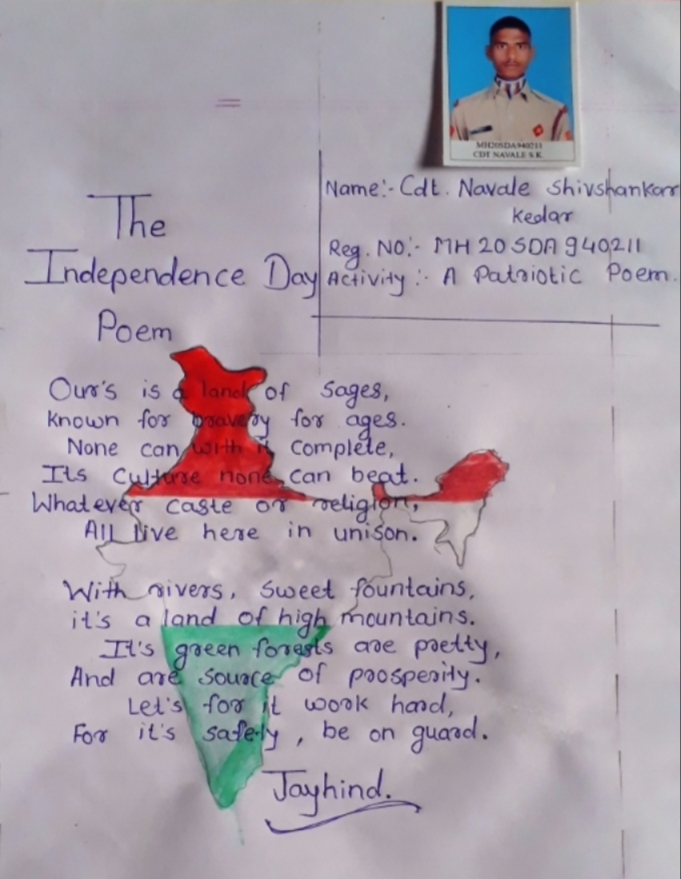 MH20SDA940211
CDT NAVALE S.K.
Name:- Cdt. Navale Shivshankar
Kedar
Reg. NO:- MH 20 SDA 940211
Activity :- A Patriotic Poem.
The
Independence Day
Poem
Our's is a land of Sages,
Known for bravery for ages.
None can with it Complete,
Its Culture none can beat.
Whatever caste or religion,
All live here in unison.
With rivers, sweet fountains,
it's a land of high mountains.
It's green forests are pretty,
And are source of prosperity.
Let's for it work hard,
For it's safely, be on guard.
Jayhind.